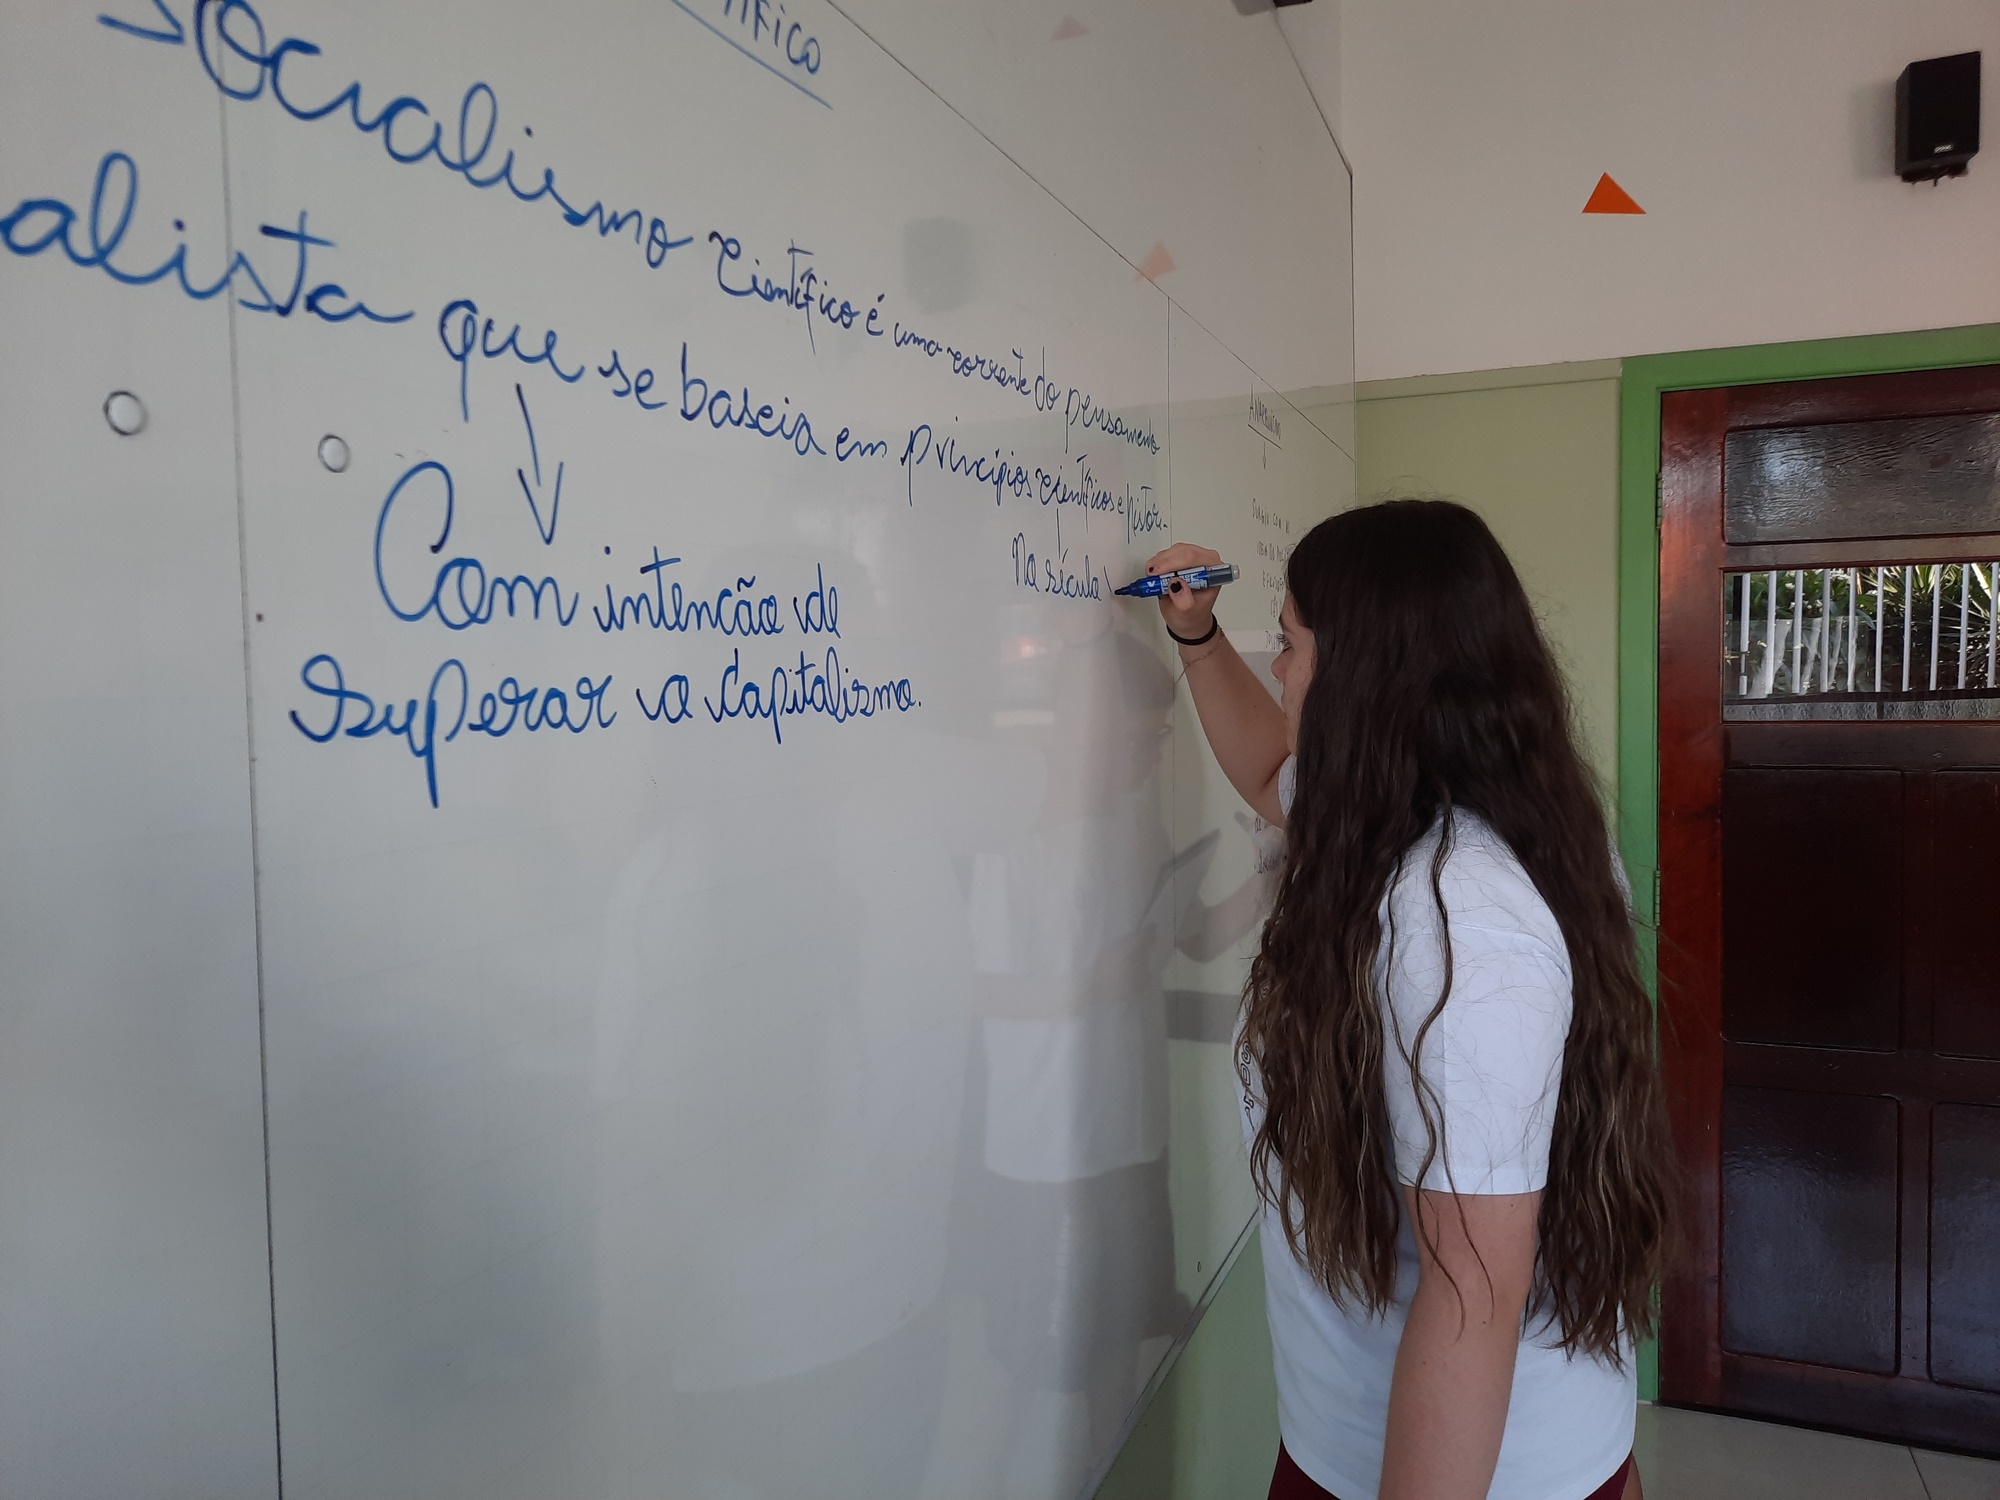 socialismo científico é uma corrente do pensamento
alista que se baseia em princípios científicos e histori-
Com intenção de
superar o capitalismo.
No século
ANARQUISMO